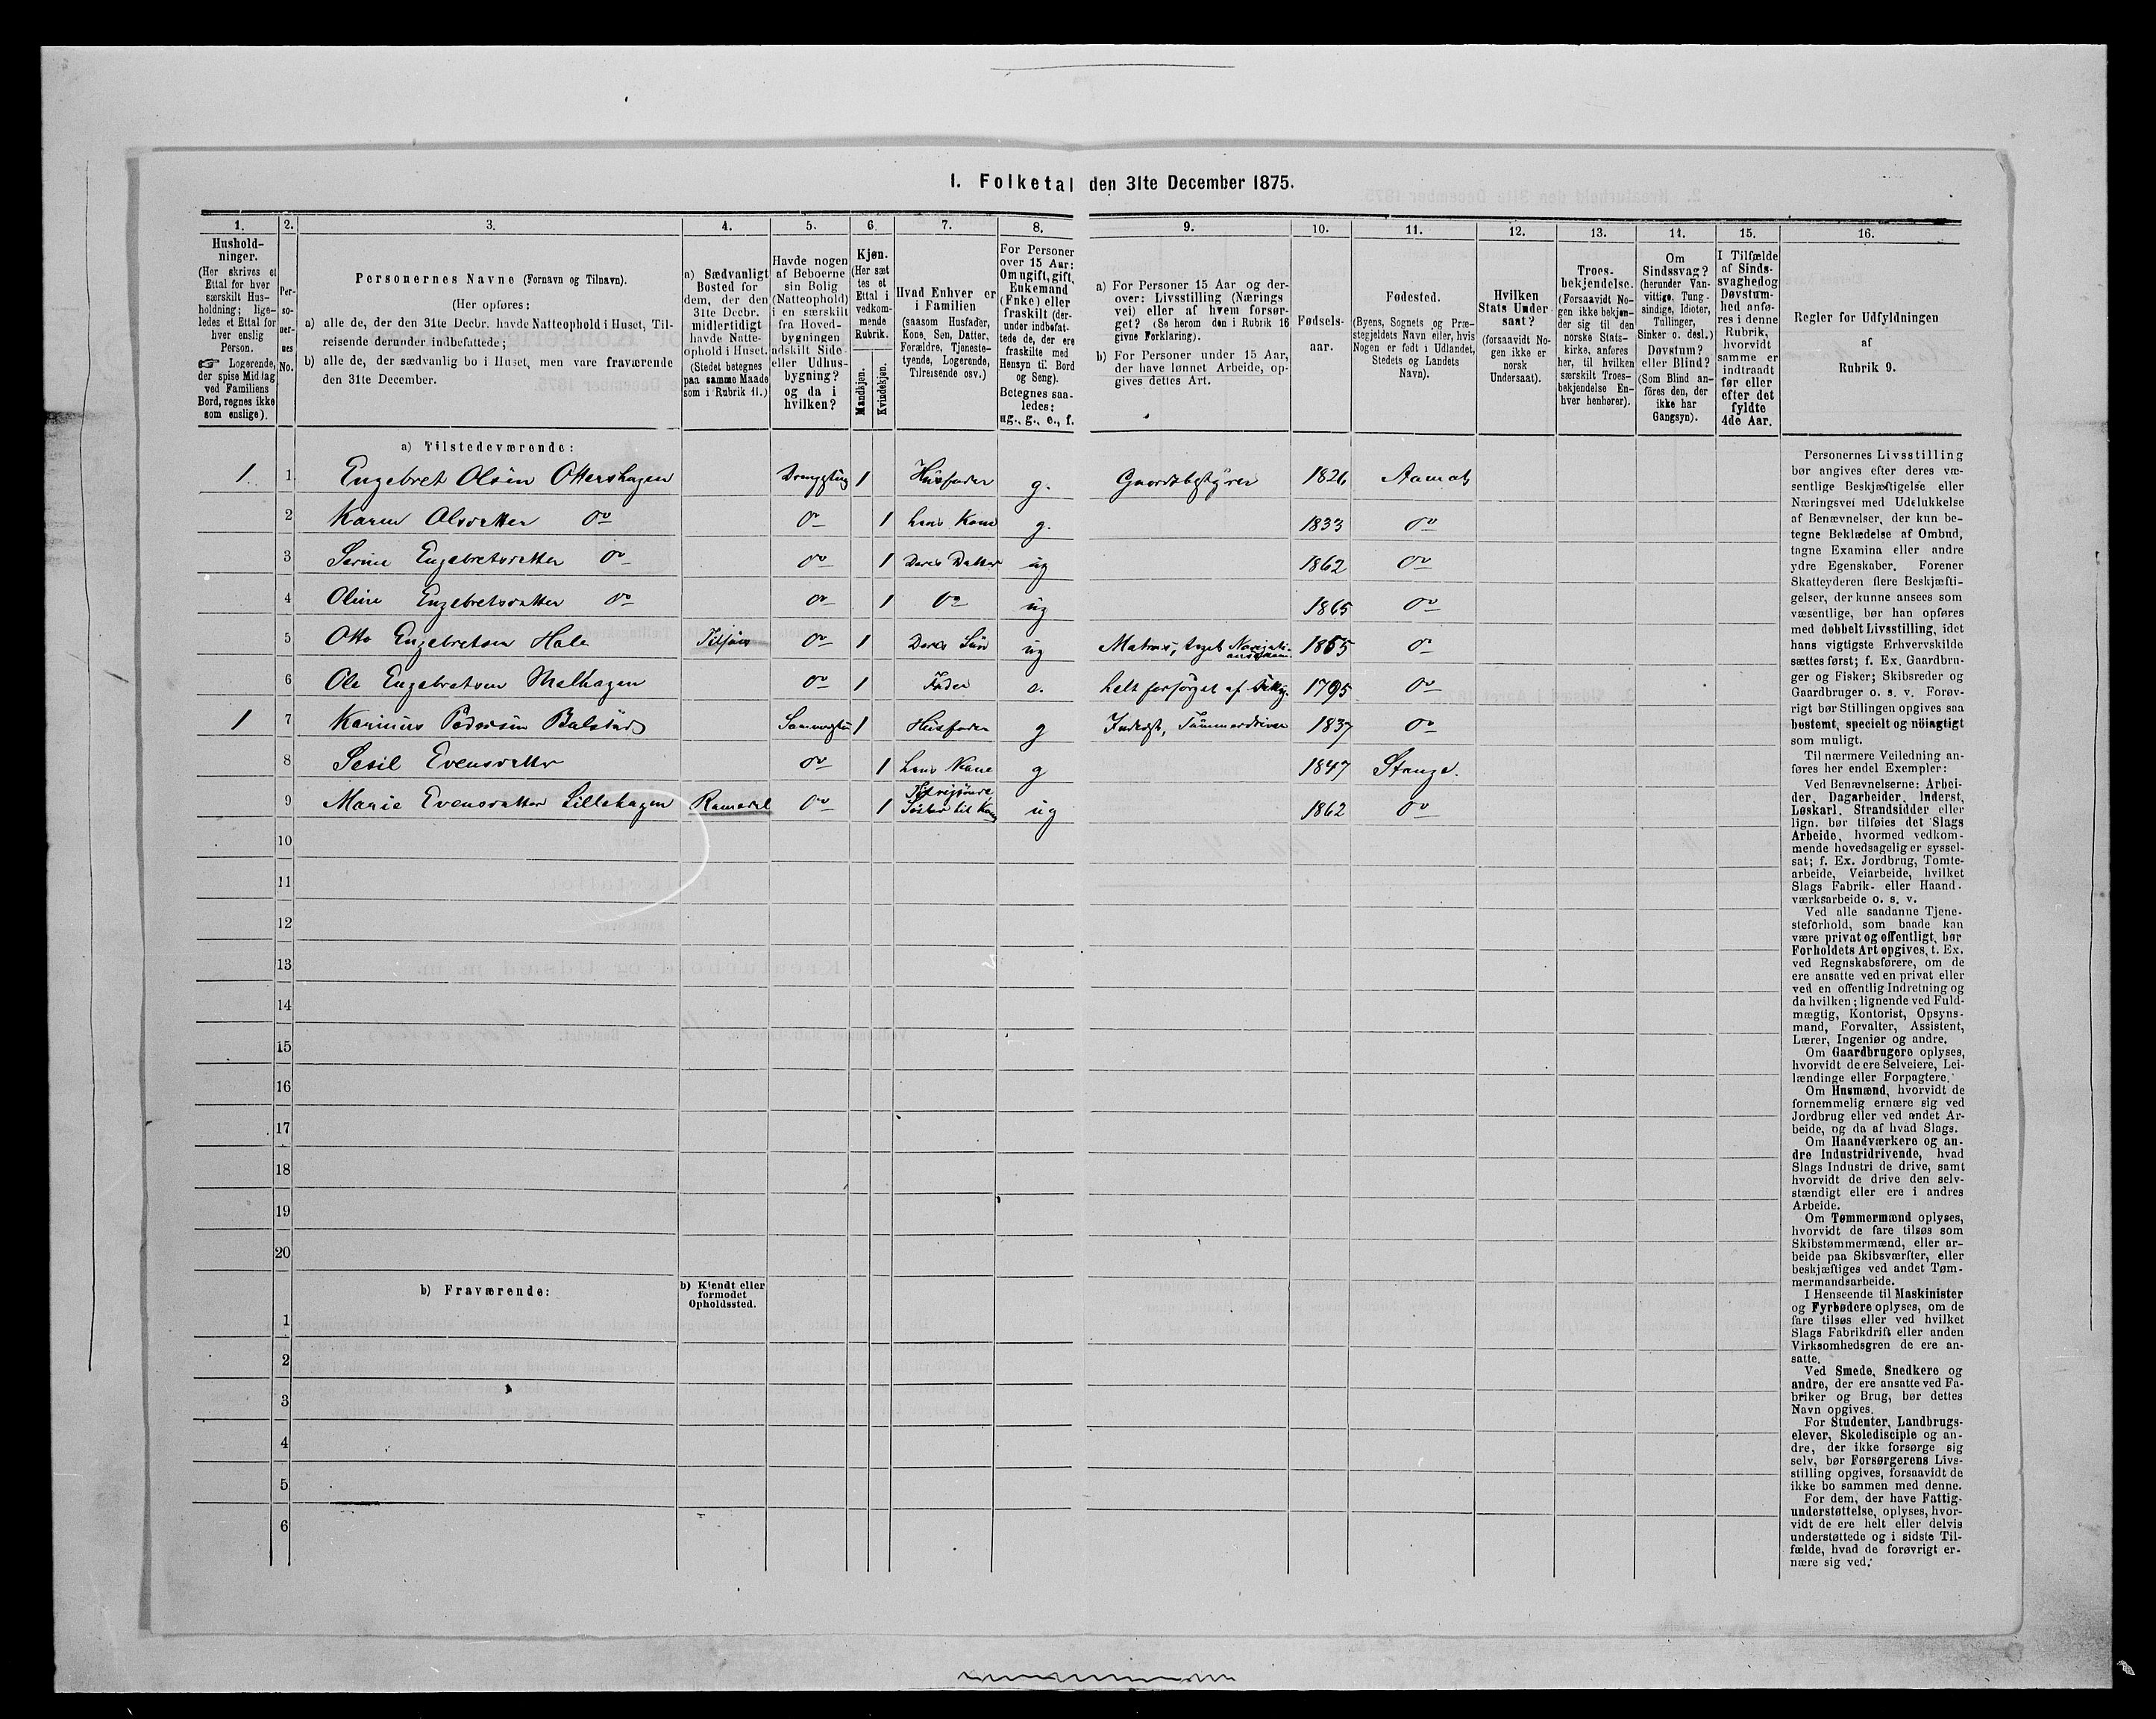 I. Folketal den 31te December 1875.
1. 2. 3. 4. 5. 6. 7. 8. 9. 10. 11. 12. 13. 14. 15. 16.
Hushold-
ninger.
(Her skrives et
Ettal for hver
særskilt Hus-
holdning; lige-
ledes et Ettal for
hver enslig
Person.
☞ Logerende,
der spise Middag
ved Familiens
Bord, regnes ikke
som enslige).
Per-
so-
ner-
nes
No.
Personernes Navne (Fornavn og Tilnavn).
(Her opføres:
a) alle de, der den 31te Decbr. havde Natteophold i Huset, Til-
reisende derunder indbefattede;
b) alle de, der sædvanlig bo i Huset, men vare fraværende
den 31te December.
a) Sædvanligt
Bosted for
dem, der den
31te Decbr.
midlertidigt
havde Natte-
ophold i Huset.
(Stedet betegnes
paa samme Maade
som i Rubrik 11.)
Havde nogen
af Beboerne
sin Bolig
(Natteophold)
i en særskilt
fra Hoved-
bygningen
adskilt Side-
eller Udhus-
bygning?
og da i
hvilken?
Kjøn.
(Her sæt
tes et
Ettal i
vedkom-
mende
Rubrik.
Mandkjøn.
Kvindekjøn.
Hvad Enhver er
i Familien
(saasom Husfader,
Kone, Søn, Datter,
Forældre, Tjeneste-
tyende, Logerende,
Tilreisende osv.)
For Personer
over 15 Aar:
Om ugift, gift,
Enkemand
(Enke) eller
fraskilt (der-
under indbefat-
tede de, der ere
fraskilte med
Hensyn til Bord
og Seng).
Betegnes saa-
ledes:
ug., g., e., f.
a) For Personer 15 Aar og der-
over: Livsstilling (Nærings
vei) eller af hvem forsør-
get? (Se herom den i Rubrik 16
givne Forklaring).
b) For Personer under 15 Aar,
der have lønnet Arbeide, op-
gives dettes Art.
Fødsels-
aar.
Fødested.
(Byens, Sognets og Præ-
stegjeldets Navn eller, hvis
Nogen er født i Udlandet,
Stedets og Landets
Navn).
Hvilken
Stats Under
saat?
(forsaavidt No-
gen ikke er
norsk
Undersaat).
Troes-
bekjendelse.
(Forsaavidt No-
gen ikke bekjen-
der sig til den
norske Stats-
kirke, anføres
her, til hvilken
særskilt Troes-
bekjendelse En-
hver henhører).
Om
Sindssvag?
(herunder Van-
vittige, Tung-
sindige, Idioter,
Tullinger,
Sinker o. desl.)
Døvstum?
eller Blind?
(Som Blind an-
føres den, der
ikke har
Gangsyn).
I Tilfælde
af Sinds-
svaghed og
Døvstum-
hed anfø-
res i denne
Rubrik,
hvorvidt
samme er
indtraadt
før eller
efter det
fyldte
4de Aar.
Regler for Udfyldningen
af
Rubrik 9.
a) Tilstedeværende:
1 1 Engebret Olsen Ottershagen 1 Husfader g. Gaardsbestyrer 1826 Aamot
2 Karen Olsdatter do do 1 hans Kone g. 1833 do
3 Serine Engebretsdatter do do 1 Deres Datter ug 1862 do
4 Oline Engebretsdatter do do 1 do ug 1865 do
5 Otto Engebretsen Hole Tilsjøes do 1 Deres Søn ug Matros, taget 1855 do
6 Ole Engebretsen do 1 Fader e. helt forsørget af 1795 do
1 7 Karinus Pedersen Balstad 1 Husfader g Inderst, Tømmerdriver 1837 do
8 Sesil Evensdatter do 1 hans Kone g 1847 Stange.
9 Marie Evensdatter Lillehagen do 1 Søster til Kone ug 1862 do
10
11
12
13
14
15
16
17
18
19
20
b) Fraværende:
b) Kjendt eller
formodet
Opholdssted.
1
2
3
4
5
6
Personernes Livsstilling
bør angives efter deres væ-
sentlige Beskjæftigelse eller
Næringsvei med Udelukkelse
af Benævnelser, der kun be-
tegne Beklædelse af Ombud,
tagne Examina eller andre
ydre Egenskaber. Forener
Skatteyderen flere Beskjæfti-
gelser, der kunne ansees som
væsentlige, bør han opføres
med dobbelt Livsstilling, idet
hans vigtigste Erhvervskilde
sættes først; f. Ex. Gaardbru-
ger og Fisker; Skibsreder og
Gaardbruger o. s. v. Forøv-
rigt bør Stillingen opgives saa
bestemt, specielt og nöiagtigt
som muligt.
Til nærmere Veiledning an-
føres her endel Exempler:
Ved Benævnelserne: Arbei-
der, Dagarbeider, Inderst,
Løskarl, Strandsidder eller
lign. bør tilføies det Slags
Arbeide, hvormed vedkom-
mende hovedsagelig er syssel-
sat; f. Ex. Jordbrug, Tomte-
arbeide, Veiarbeide, hvilket
Slags Fabrik- eller Haand-
værksarbeide o. s. v.
Ved alle saadanne Tjene-
steforhold, som baade kan
være privat og offentligt, bør
Forholdets Art opgives, t. Ex.
ved Regnskabsførere, om de
ere ansatte ved en privat eller
ved en offentlig Indretning og
da hvilken; lignende ved Fuld-
mægtig, Kontorist, Opsyns-
mand, Forvalter, Assistent,
Lærer, Ingeniør og andre.
Om Gaardbrugere oplyses,
hvorvidt de ere Selveiere, Lei-
lændinge eller Forpagtere.
Om Husmænd, hvorvidt de
fornemmelig ernære sig ved
Jordbrug eller ved andet Ar-
beide, og da af hvad Slags.
Om Haandværkere og an-
dre Industridrivende, hvad
Slags Industri de drive, samt
hvorvidt de drive den selv-
stændigt eller ere i andres
Arbeide.
Om Tømmermænd oplyses,
hvorvidt de fare tilsøs som
Skibstømmermænd, eller ar-
beide paa Skibsværfter, eller
beskjæftiges ved andet Tøm-
mermandsarbeide.
I Henseende til Maskinister
og Fyrbødere oplyses, om de
fare tilsøs eller ved hvilket
Slags Fabrikdrift eller anden
Virksomhedsgren de ere an-
satte.
Ved Smede, Snedkere og
andre, der ere ansatte ved Fa-
briker og Brug, bør dettes
Navn opgives.
For Studenter, Landbrugs-
elever, Skoledisciple og an-
dre, der ikke forsørge sig
selv, bør Forsørgerens Livs-
stilling opgives, forsaavidt de
ikke bo sammen med denne.
For dem, der have Fattig-
understøttelse, oplyses, hvor-
vidt de ere helt eller delvis
understøttede og i sidste Til-
fælde, hvad de forøvrigt er-
nære sig ved.